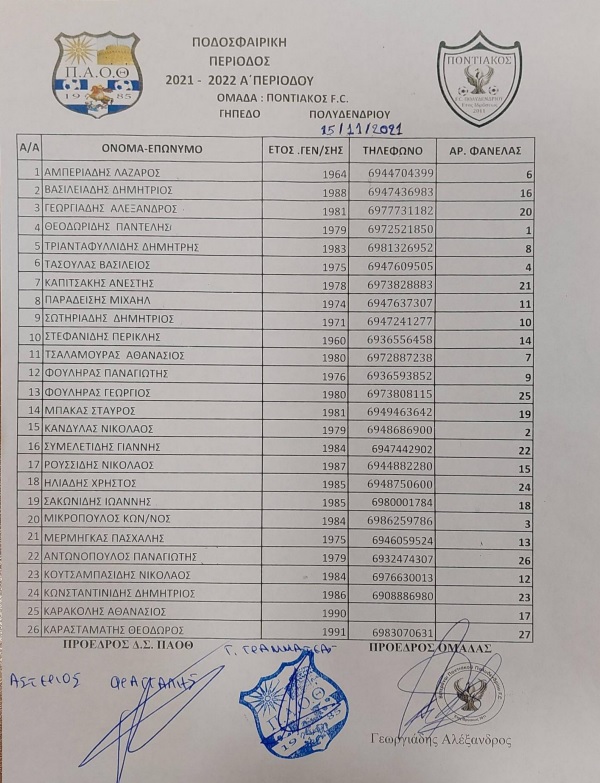 ΠΟΔΟΣΦΑΙΡΙΚΗ
ΠΕΡΙΟΔΟΣ
2021 - 2022 Α΄ΠΕΡΙΟΔΟΥ
ΟΜΑΔΑ : ΠΟΝΤΙΑΚΟΣ F.C.
ΓΗΠΕΔΟ ΠΟΛΥΔΕΝΔΡΙΟΥ
15/11/2021
Π.Α.Ο.Θ
1985
ΠΟΝΤΙΑΚΟΣ
F.C. ΠΟΛΥΔΕΝΔΡΙΟ
2013
Α/Α ΟΝΟΜΑ-ΕΠΩΝΥΜΟ ΕΤΟΣ .ΓΕΝ/ΣΗΣ ΤΗΛΕΦΩΝΟ ΑΡ. ΦΑΝΕΛΑΣ
1 ΑΜΠΕΡΙΑΔΗΣ ΛΑΖΑΡΟΣ 1964 6944704399 6
2 ΒΑΣΙΛΕΙΑΔΗΣ ΔΗΜΗΤΡΙΟΣ 1988 6947436983 16
3 ΓΕΩΡΓΙΑΔΗΣ ΑΛΕΞΑΝΔΡΟΣ 1981 6977731182 20
4 ΘΕΟΔΩΡΙΔΗΣ ΠΑΝΤΕΛΗΣ 1979 6972521850 1
5 ΤΡΙΑΝΤΑΦΥΛΛΙΔΗΣ ΔΗΜΗΤΡΗΣ 1983 6981326952 8
6 ΤΑΣΟΥΛΑΣ ΒΑΣΙΛΕΙΟΣ 1975 6947609505 4
7 ΚΑΠΙΤΣΑΚΗΣ ΑΝΕΣΤΗΣ 1978 6973828883 21
8 ΠΑΡΑΔΕΙΣΗΣ ΜΙΧΑΗΛ 1974 6947637307 11
9 ΣΩΤΗΡΙΑΔΗΣ ΔΗΜΗΤΡΙΟΣ 1971 6947241277 10
10 ΣΤΕΦΑΝΙΔΗΣ ΠΕΡΙΚΛΗΣ 1960 6936556458 14
11 ΤΣΑΛΑΜΟΥΡΑΣ ΑΘΑΝΑΣΙΟΣ 1980 6972887238 7
12 ΦΟΥΛΗΡΑΣ ΠΑΝΑΓΙΩΤΗΣ 1976 6936593852 9
13 ΦΟΥΛΗΡΑΣ ΓΕΩΡΓΙΟΣ 1980 6973808115 25
14 ΜΠΑΚΑΣ ΣΤΑΥΡΟΣ 1981 6949463642 19
15 ΚΑΝΔΥΛΑΣ ΝΙΚΟΛΑΟΣ 1979 6948686900 2
16 ΣΥΜΕΛΕΤΙΔΗΣ ΓΙΑΝΝΗΣ 1984 6947442902 22
17 ΡΟΥΣΣΙΔΗΣ ΝΙΚΟΛΑΟΣ 1987 6944882280 15
18 ΗΛΙΑΔΗΣ ΧΡΗΣΤΟΣ 1985 6948750600 24
19 ΣΑΚΩΝΙΔΗΣ ΙΩΑΝΝΗΣ 1985 6980001784 18
20 ΜΙΚΡΟΠΟΥΛΟΣ ΚΩΝ/ΝΟΣ 1984 6986259786 3
21 ΜΕΡΜΗΓΚΑΣ ΠΑΣΧΑΛΗΣ 1975 6946059524 13
22 ΑΝΤΩΝΟΠΟΥΛΟΣ ΠΑΝΑΓΙΩΤΗΣ 1979 6932474307 26
23 ΚΟΥΤΣΑΜΠΑΣΙΔΗΣ ΝΙΚΟΛΑΟΣ 1984 6976630013 12
24 ΚΩΝΣΤΑΝΤΙΝΙΔΗΣ ΔΗΜΗΤΡΙΟΣ 1986 6908886980 23
25 ΚΑΡΑΚΟΛΗΣ ΑΘΑΝΑΣΙΟΣ 1990 17
26 ΚΑΡΑΣΤΑΜΑΤΗΣ ΘΕΟΔΩΡΟΣ 1991 6983070631 27
ΠΡΟΕΔΡΟΣ Δ.Σ. ΠΑΟΘ ΠΡΟΕΔΡΟΣ ΟΜΑΔΑΣ
ΑΣΤΕΡΙΟΣ
Π.Α.Ο.Θ
1985
Γεωργιάδης Αλέξανδρος